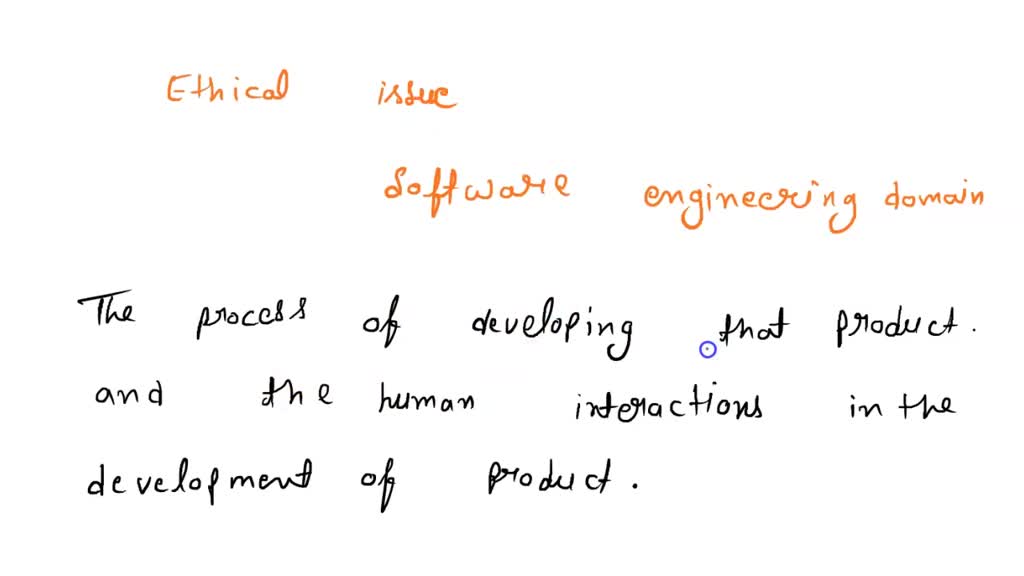 Ethical issue
Software engineering domain
The process of developing that product.
and the human interactions in the
development of product.